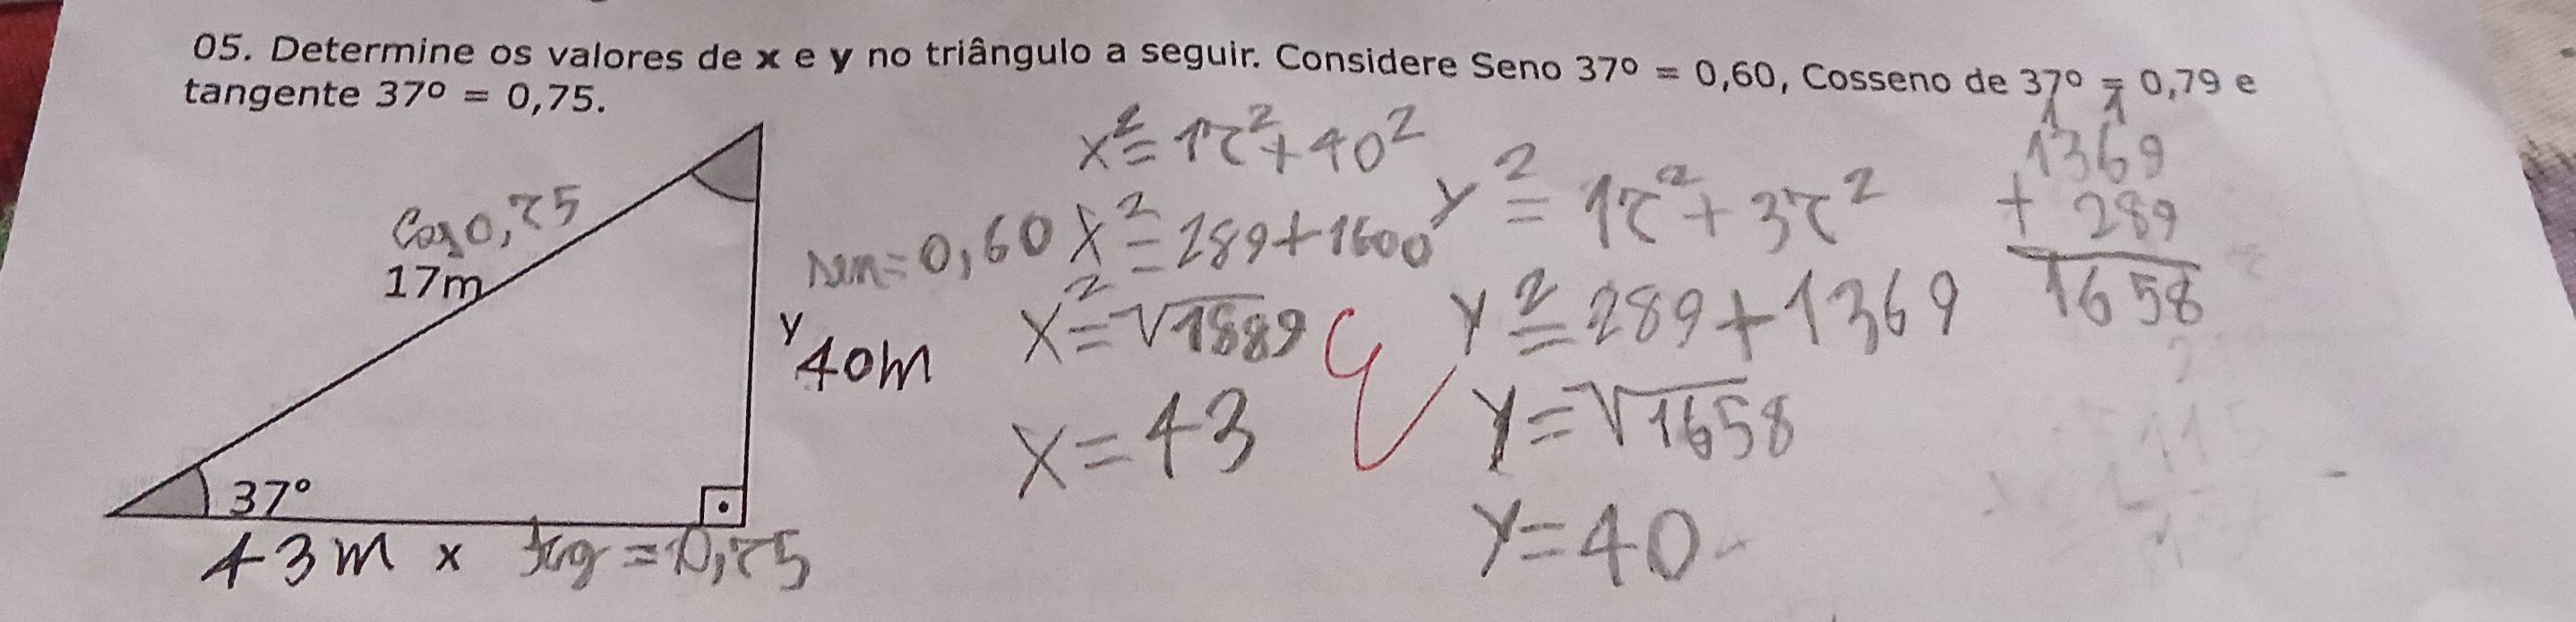 05. Determine os valores de x e y no triângulo a seguir. Considere Seno 37º = 0,60, Cosseno de 37º = 0,79 e
tangente 37º = 0,75.
Cos 0,75
17m
37º
43m x tg = 0,75
sen = 0,60
y
40m
x² = 17² + 40²
x² = 289 + 1600
x² = √1889
x = 43
y² = 17² + 37²
y² = 289 + 1369
y = √1658
y = 40
1 1
1369
+ 289
1658